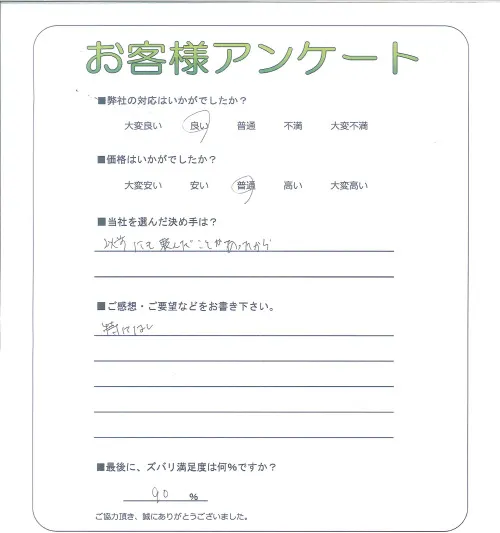 お客様アンケート
■弊社の対応はいかがでしたか？
大変良い 良い 普通 不満 大変不満
■価格はいかがでしたか？
大変安い 安い 普通 高い 大変高い
■当社を選んだ決め手は？
以前にも頼んだことがあったから
■ご感想・ご要望などをお書き下さい。
特になし
■最後に、ズバリ満足度は何％ですか？
90 %
ご協力頂き、誠にありがとうございました。